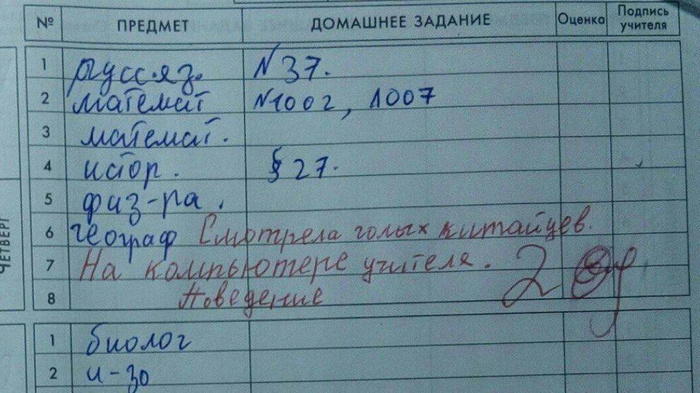 № ПРЕДМЕТ ДОМАШНЕЕ ЗАДАНИЕ Оценка Подпись учителя
1 русс.яз. N 37.
2 математ N1002, 1007
3 математ.
4 истор. § 27.
5 физ-ра.
6 географ Смотрела голых китайцев.
7 На компьютере учителя. 2
8 Поведение
ЧЕТВЕРГ
1 биолог
2 и-зо